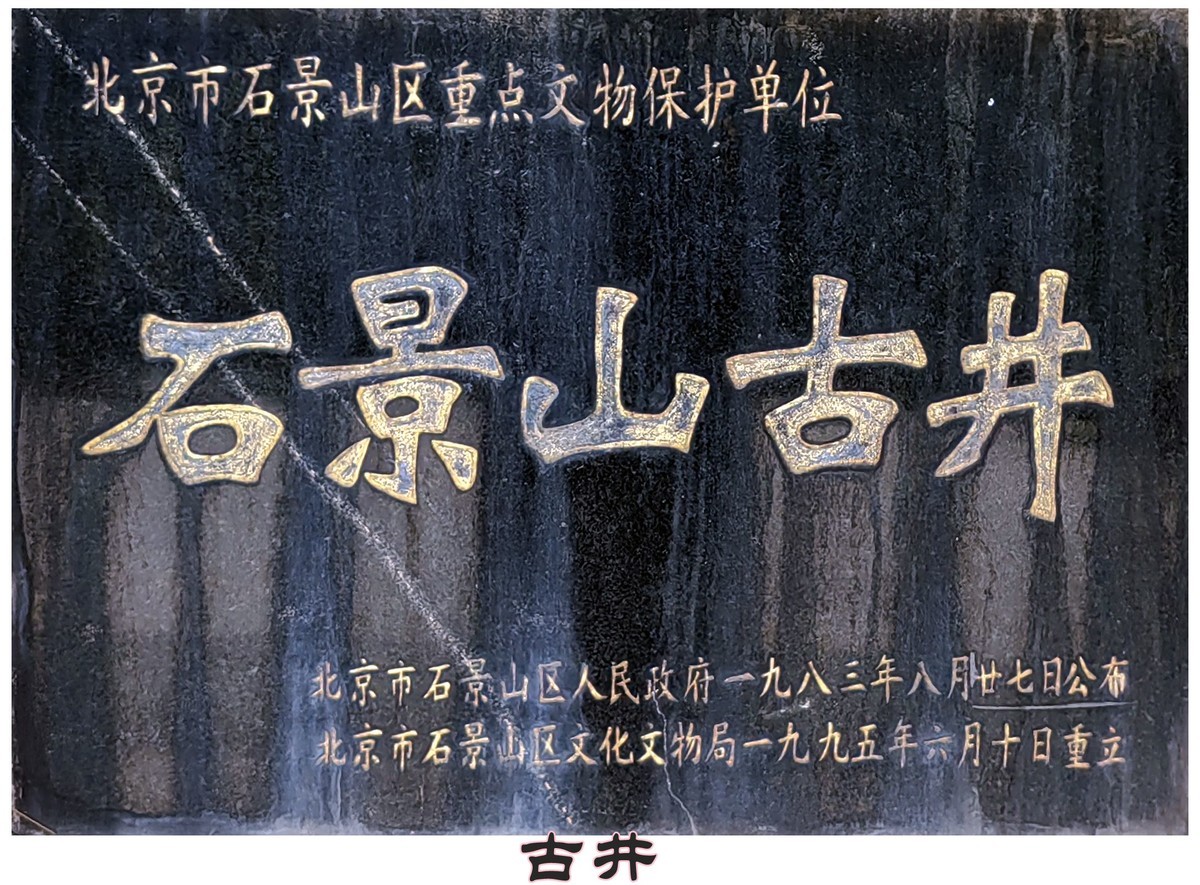 北京市石景山区重点文物保护单位
石景山古井
北京市石景山区人民政府一九八三年八月廿七日公布
北京市石景山区文化文物局一九九五年六月十日重立
古井